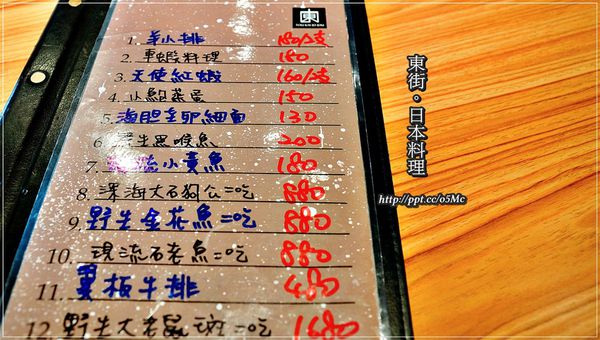 東
1. 羊小排 180/支
2. 車蝦料理 180
3. 天使紅蝦 160/支
4. 小鮑蒸蛋 150
5. 海胆辛卵細面 130
6. 野生黑喉魚 200
7. 現流小卷魚 180
8. 深海大石狗公二吃 880
9. 野生金花魚二吃 880
10. 現流石老魚二吃 880
11. 翼板牛排 480
12. 野生大老鼠斑二吃 1680
東街・日本料理
http://ppt.cc/o5Mc